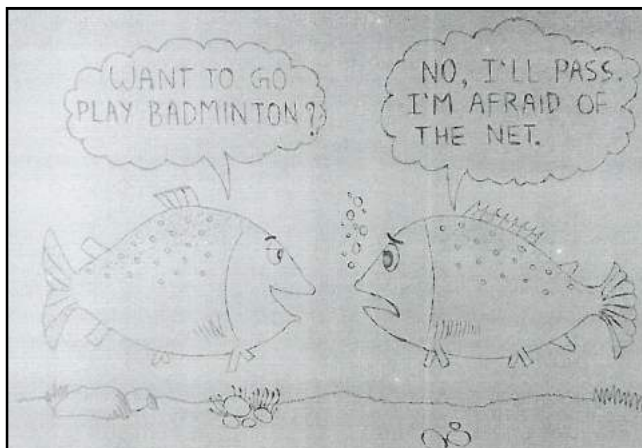 WANT TO GO
PLAY BADMINTON?
NO, I'LL PASS.
I'M AFRAID OF
THE NET.